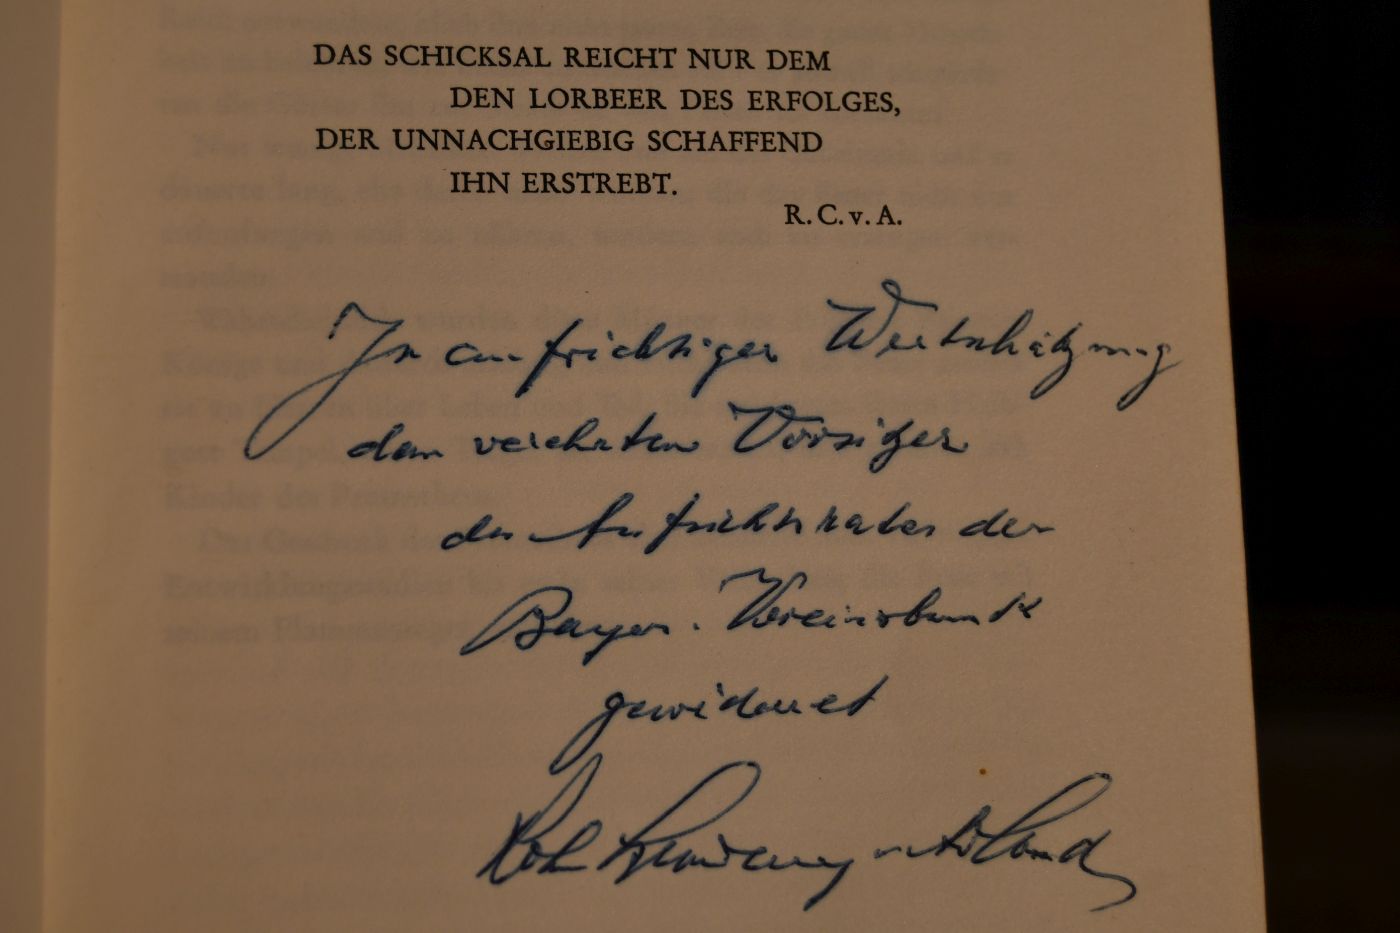 DAS SCHICKSAL REICHT NUR DEM
DEN LORBEER DES ERFOLGES,
DER UNNACHGIEBIG SCHAFFEND
IHN ERSTREBT.
R. C. v. A.
In aufrichtiger Wertschätzung
dem verehrten Vorsitzer
des Aufsichtsrates der
Bayer. Vereinsbank
gewidmet